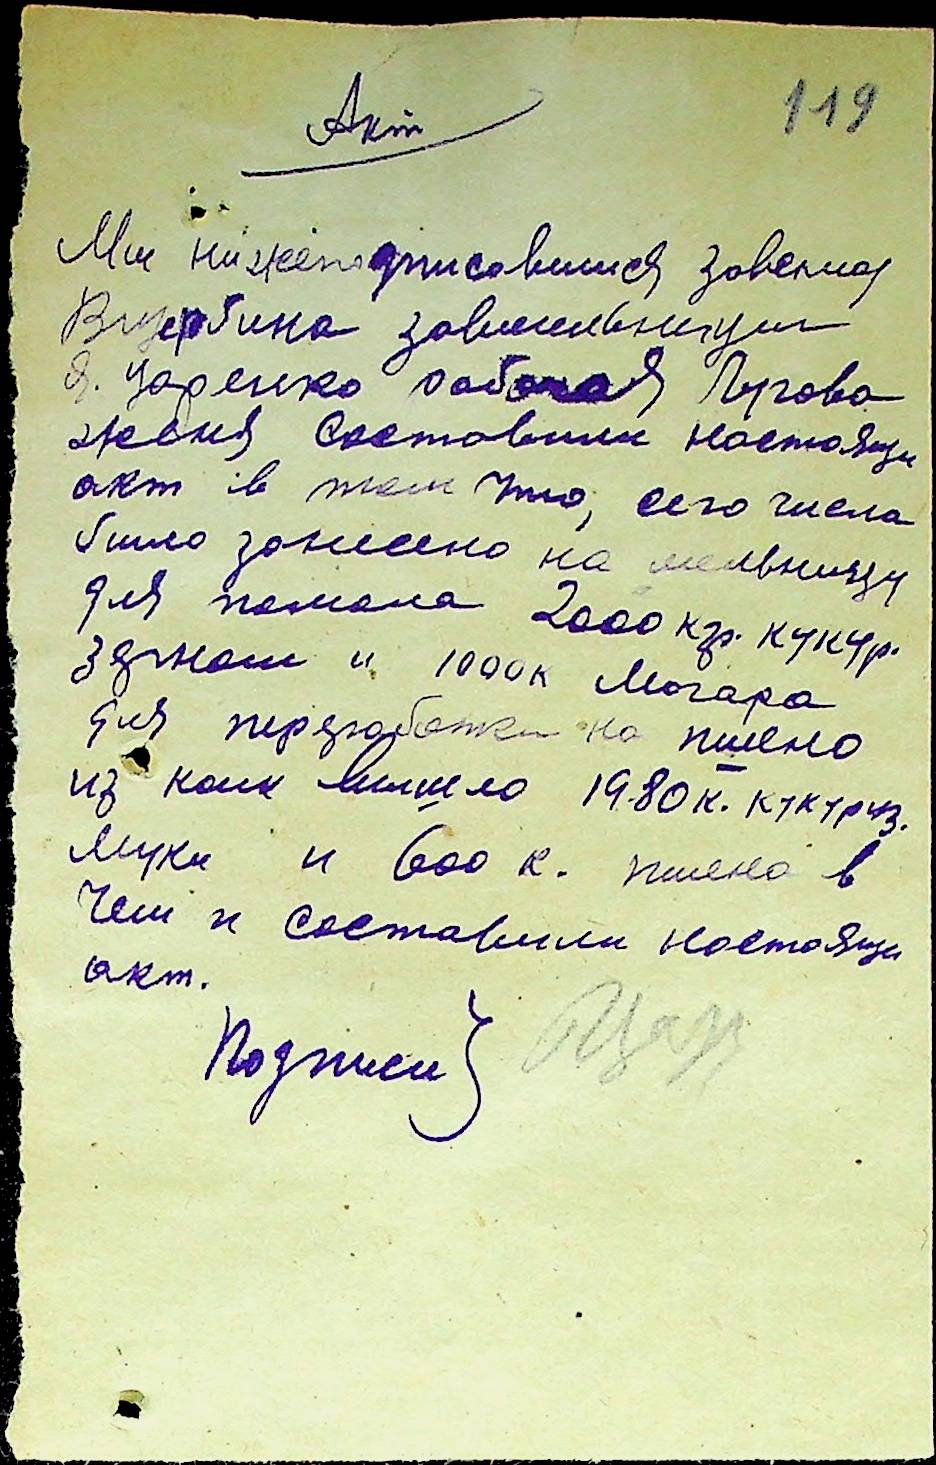 119
Акт
Ми нижеподписавшися завскла
Вщербина завмельниции
Я. Царенко рабочая Пугова
Женя составили настоящи
акт в том что, сего числа
било занесено на мельницу
для помола 2000 кгр. кукур.
зерном и 1000к могара
для перэработки на пшено
из коих вишло 1980 к. кукуруз.
Муки и 600 к. пшена в
Чем и составили настоящи
акт.
Подписи} Яцар